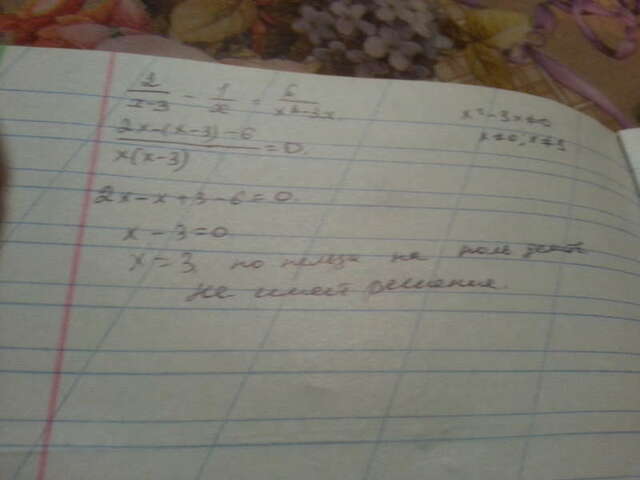 2/(x-3) - 1/x = 6/(x²-3x)
x²-3x≠0
x≠0, x≠3
(2x-(x-3)-6)/(x(x-3)) = 0
2x-x+3-6=0
x-3=0
x=3 но нельзя на ноль делить
не имеет решения.